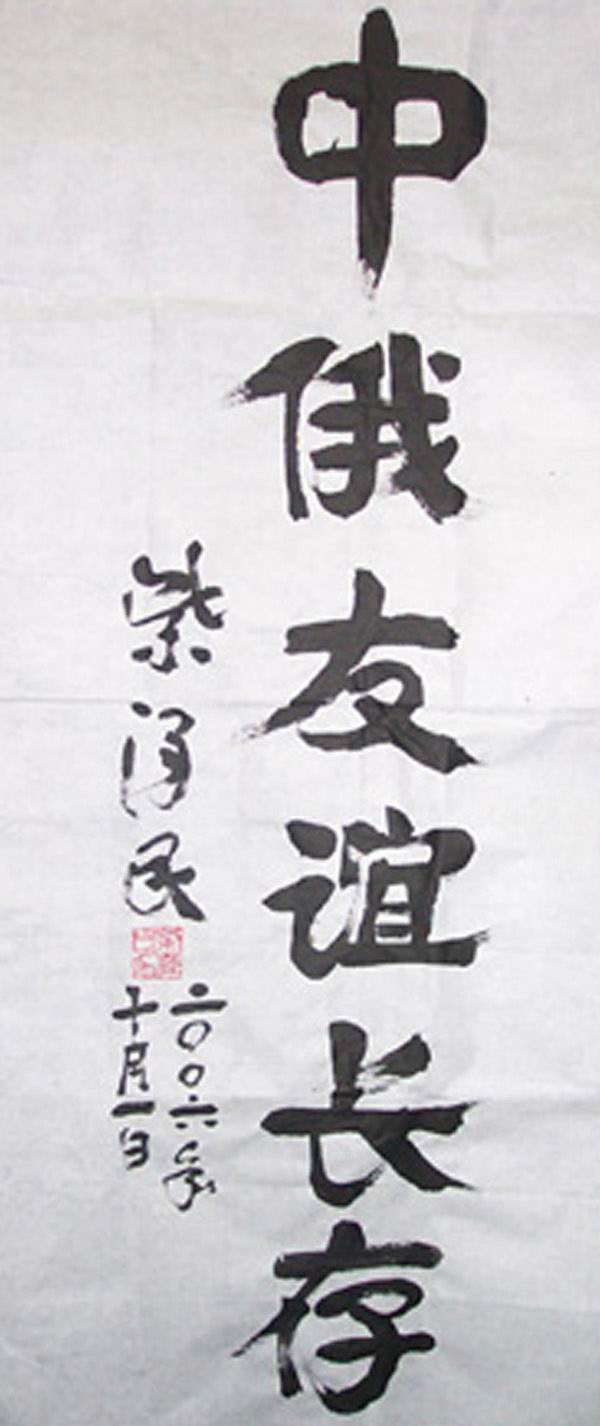 中俄友谊长存
柴泽民
二〇〇六年
十月一日